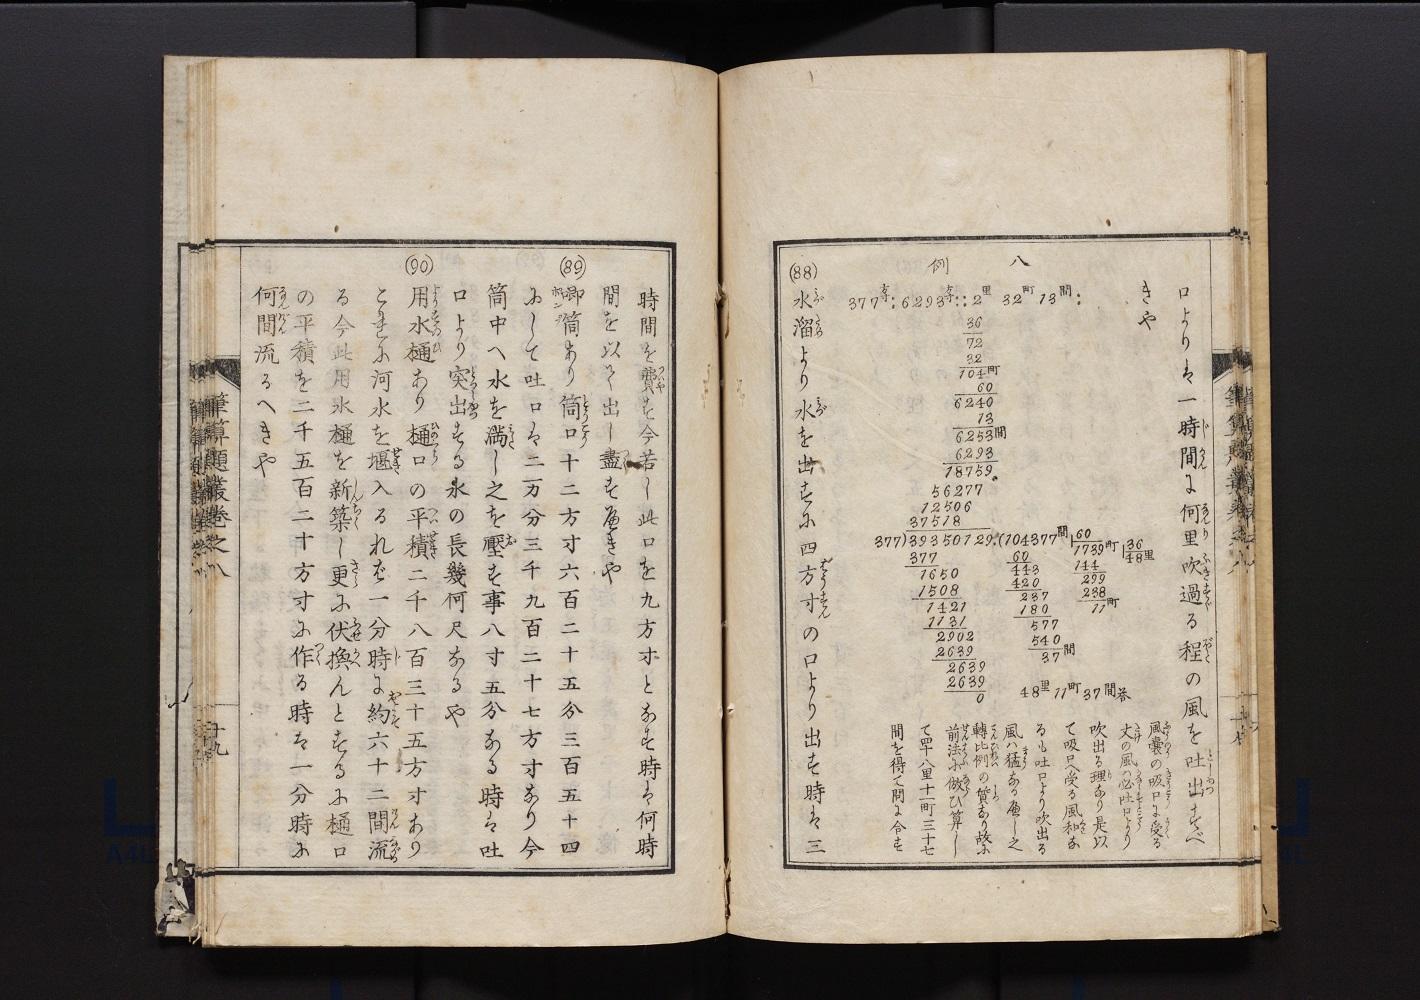 口よりは一時間に何里吹過る程の風を吐出すべ
きや
八
例
377等:6293等::2里 32町 13間:
36
72
32
104町
60
6240
13
6253間
6293
18759
56277
12506
37518
377)39350129(104377間
377
1650
1508
1421
1131
2902
2639
2639
2639
0
60
1739町
60
443
420
237
180
577
540
37間
36
48里
144
299
288
11町
48里11町37間答
風嚢の吸口に受る
丈の風ハ必吐口より
吹出る理あり是以
て吸口へ受る風和な
るも吐口より吹出る
風ハ猛ある可し之
轉比例の質あり故に
前法に倣ひ算し
て四十八里十一町三十七
間を得て問に合す
(88)
水溜より水を出すに四方寸の口より出す時は三
時間を費す今若し此口を九方寸となす時は何時
間を以て出し盡す可きや
(89)
喞筒あり筒口十二方寸六百二十五分三百五十四
にして吐口は二万分三千九百二十七方寸あり今
筒中へ水を満し之を壓す事八寸五分なる時は吐
口より突出する水の長幾何尺なるや
(90)
用水樋あり樋口の平積二千八百三十五方寸あり
これに河水を堰入るれば一分時に約六十二間流
る今此用水樋を新築し更に伏換んとするに樋口
の平積を二千五百二十方寸に作る時は一分時に
何間流るへきや
筆算題叢卷之八
十九